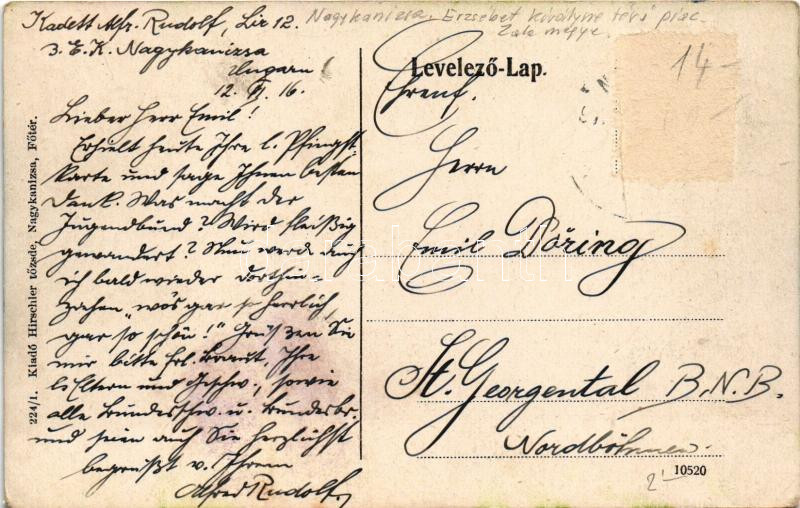 Kadett Alfr. Rudolf, Lir 12.
3. E. K. Nagykanizsa
Ungarn!
12. VI. 16.
Nagykanizsa. Erzsébet királyné téri piac
Zala megye.
Lieber Herr Emil!
Erhielt heute Ihre l. Pfingst-
karte und sage Ihnen besten
Dank. Was macht der
Jugendbund? Wird fleißig
gewandert? Nun werde auch
ich bald wieder dorthin-
ziehen „wo's gar so herrlich,
gar so schön!" Grüssen Sie
mir bitte Frl. Braut, Ihre
l. Eltern und Geschw., sowie
alle Bundesschw. u. Bundesbr.
und seien auch Sie herzlichst
begrüßt v. Ihrem
Alfred Rudolf.
224/1. Kiadó Hirschler tőzsde, Nagykanizsa, Főtér.
Levelező-Lap.
14-
Ehrenf.
Herrn
Emil Döring
St. Georgental B.N.B.
Nordböhmen.
10520